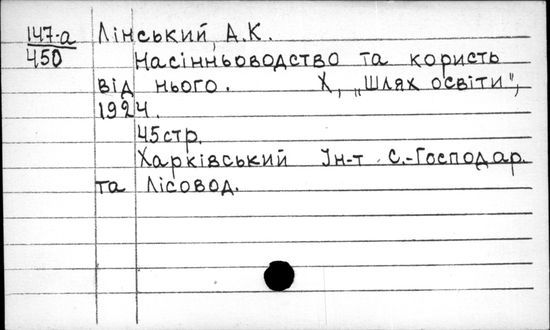 147-а Лінський, А.К.
450 Насінньоводство та користь
від нього. Х, „Шлях освіти",
1924.
45стр.
Харківський Ін-т С.-Господар.
та Лісовод.